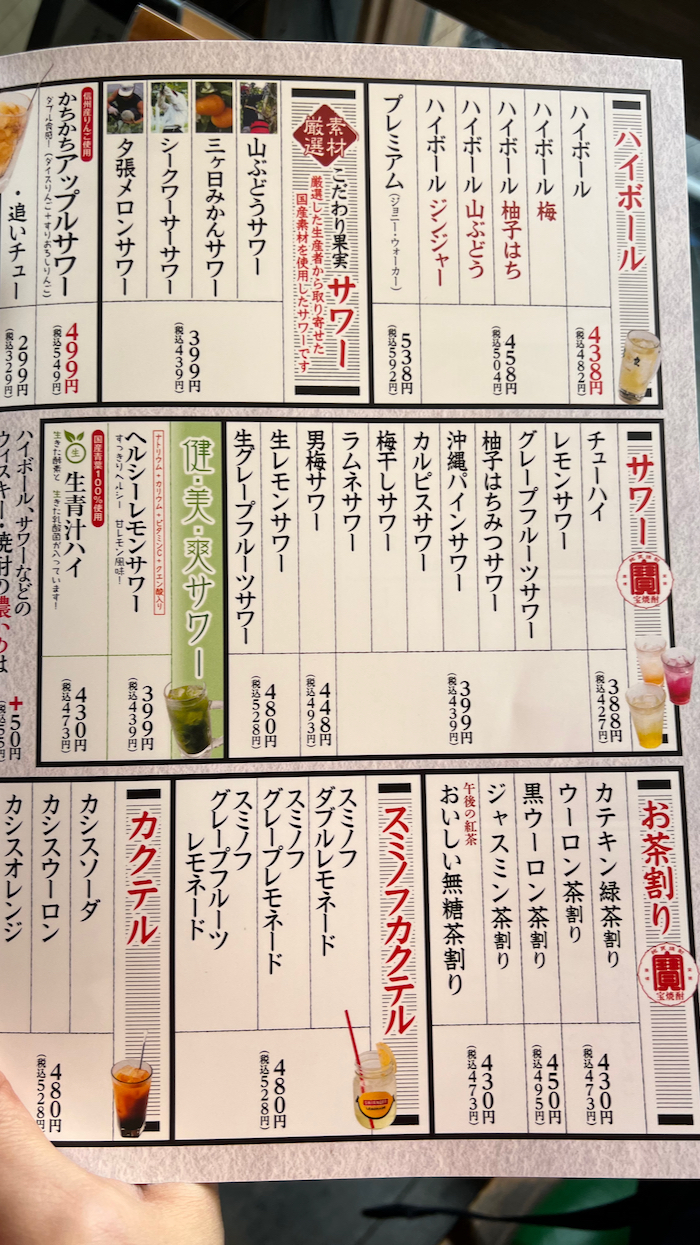 ハイボール
ハイボール
438円
(税込482円)
ハイボール 梅
ハイボール 柚子はち
ハイボール 山ぶどう
ハイボール ジンジャー
458円
(税込504円)
プレミアム(ジョニー・ウォーカー)
538円
(税込592円)
素材厳選
こだわり果実 サワー
厳選した生産者から取り寄せた
国産素材を使用したサワーです
山ぶどうサワー
三ヶ日みかんサワー
シークワーサーサワー
夕張メロンサワー
399円
(税込439円)
信州産りんご使用
かちかちアップルサワー
ダブル食感!(ダイスりんご+すりおろしりんご)
499円
(税込549円)
・追いチュー
299円
(税込329円)
サワー
寳
宝焼酎
チューハイ
388円
(税込427円)
レモンサワー
グレープフルーツサワー
柚子はちみつサワー
沖縄パインサワー
カルピスサワー
梅干しサワー
ラムネサワー
399円
(税込439円)
男梅サワー
448円
(税込493円)
生レモンサワー
生グレープフルーツサワー
480円
(税込528円)
健・美・爽サワー
ナトリウム+カリウム+ビタミンC+クエン酸入り
ヘルシーレモンサワー
すっきりヘルシー 甘レモン風味!
399円
(税込439円)
国産青葉100%使用
生
生青汁ハイ
生きた酵素と 生きた乳酸菌が入っています!
430円
(税込473円)
ハイボール、サワーなどの
ウィスキー・焼酎の濃いめは
+50円
(税込55円)
お茶割り
寳
宝焼酎
カテキン緑茶割り
ウーロン茶割り
430円
(税込473円)
黒ウーロン茶割り
450円
(税込495円)
ジャスミン茶割り
午後の紅茶
おいしい無糖茶割り
430円
(税込473円)
スミノフカクテル
スミノフ
ダブルレモネード
スミノフ
グレープレモネード
スミノフ
グレープフルーツ
レモネード
480円
(税込528円)
カクテル
カシスソーダ
カシスウーロン
カシスオレンジ
480円
(税込528円)